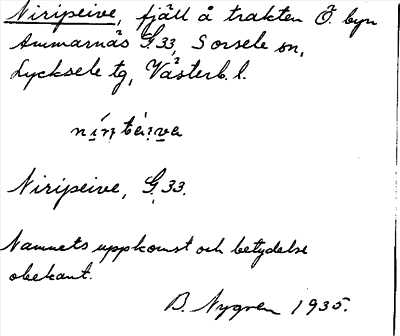 Niripeive, fjäll å trakten Ö. byn
Ammarnäs G 33, Sorsele sn,
Lycksele tg, Västerb. l.
Niripeive, G 33.
Namnets uppkomst och betydelse
obekant.
B. Nygren 1935.